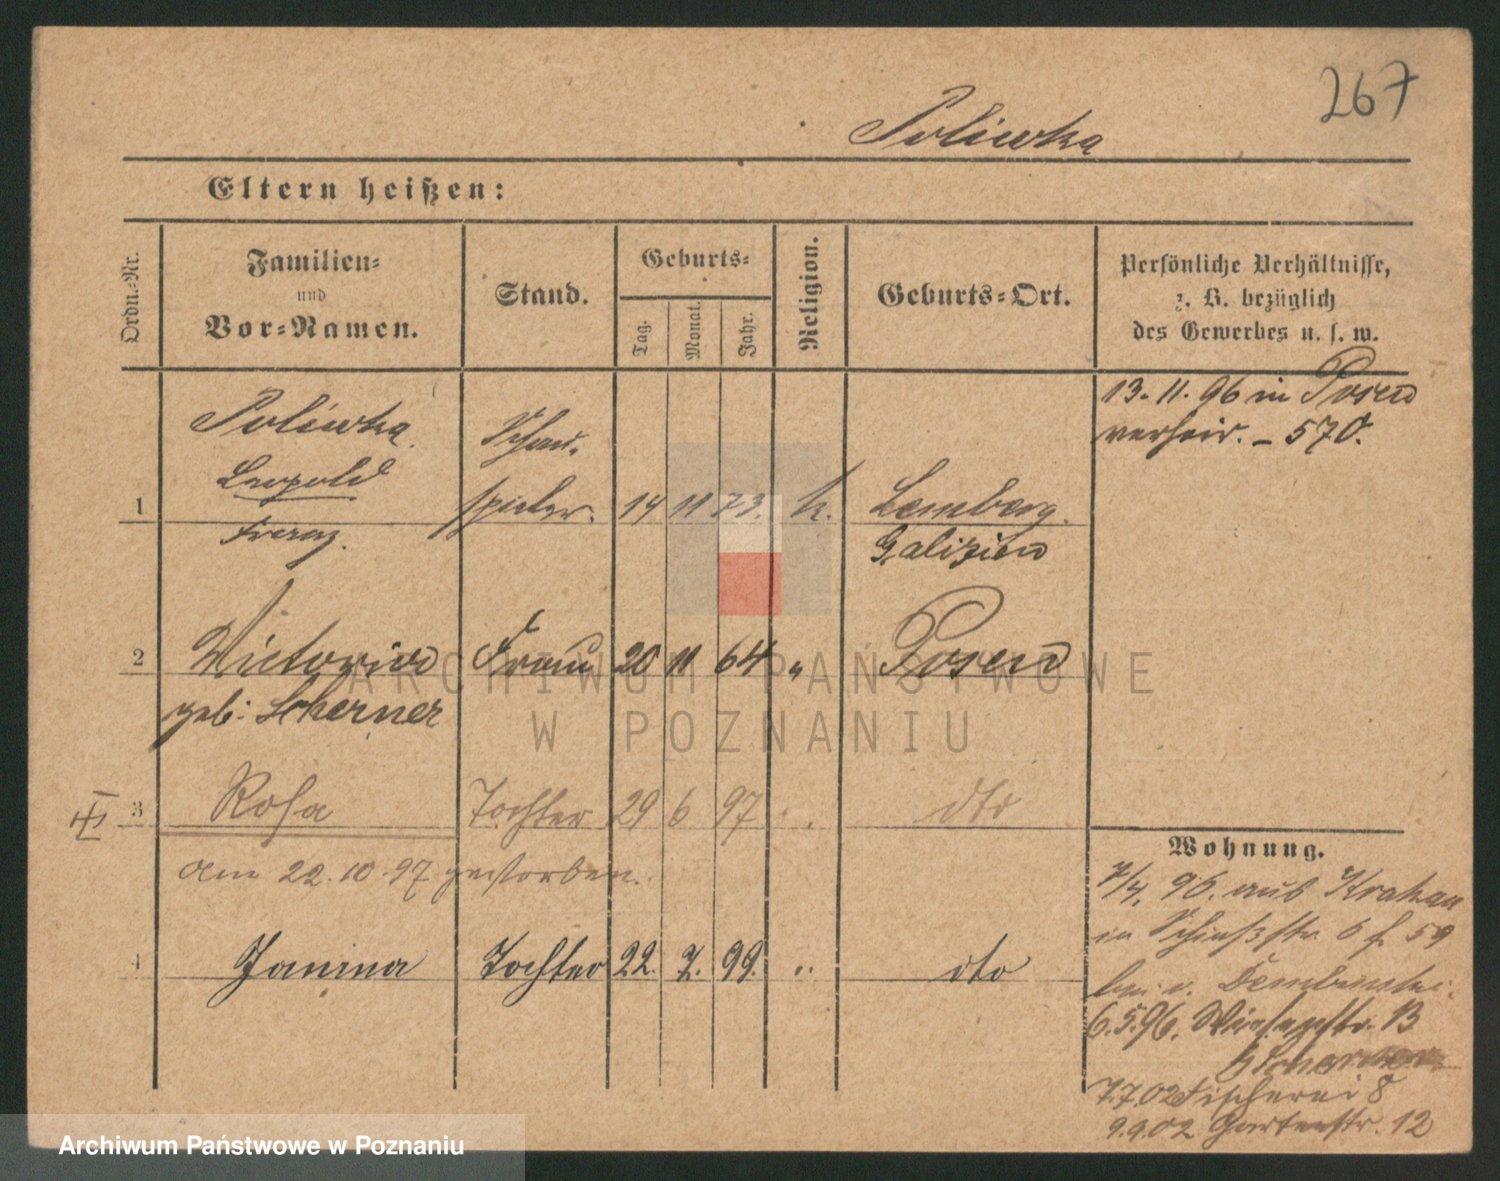 267
Poliwka
Eltern heißen:
Ordn.-Nr.
Familien-
und
Vor-Namen.
Stand.
Geburts-
Tag.
Monat.
Jahr.
Religion.
Geburts-Ort.
Persönliche Verhältnisse,
z. B. bezüglich
des Gewerbes u. s. w.
13. 11. 96 in Posen
verheir. – 570.
Poliwka
Leopold
Franz.
Schau-
1 spieler. 14 11 73. k. Lemberg.
Galizien
2 Victoria Frau 20 11 64 " Posen
geb: Scherner
3 Rosa Tochter 29 6 97 dto
am 22. 10. 97 gestorben.
4 Janina Tochter 22. 7. 99. " dto
Wohnung.
7/4. 96. aus Krakau
in Schießstr. 6 f. 59
bei v. Dembinski.
6.5.96. Wiesenstr. 13
b Scherner
7.7.02 Fischerei 8
9.9.02 Gartenstr. 12
ARCHIWUM PAŃSTWOWE
W POZNANIU
Archiwum Państwowe w Poznaniu